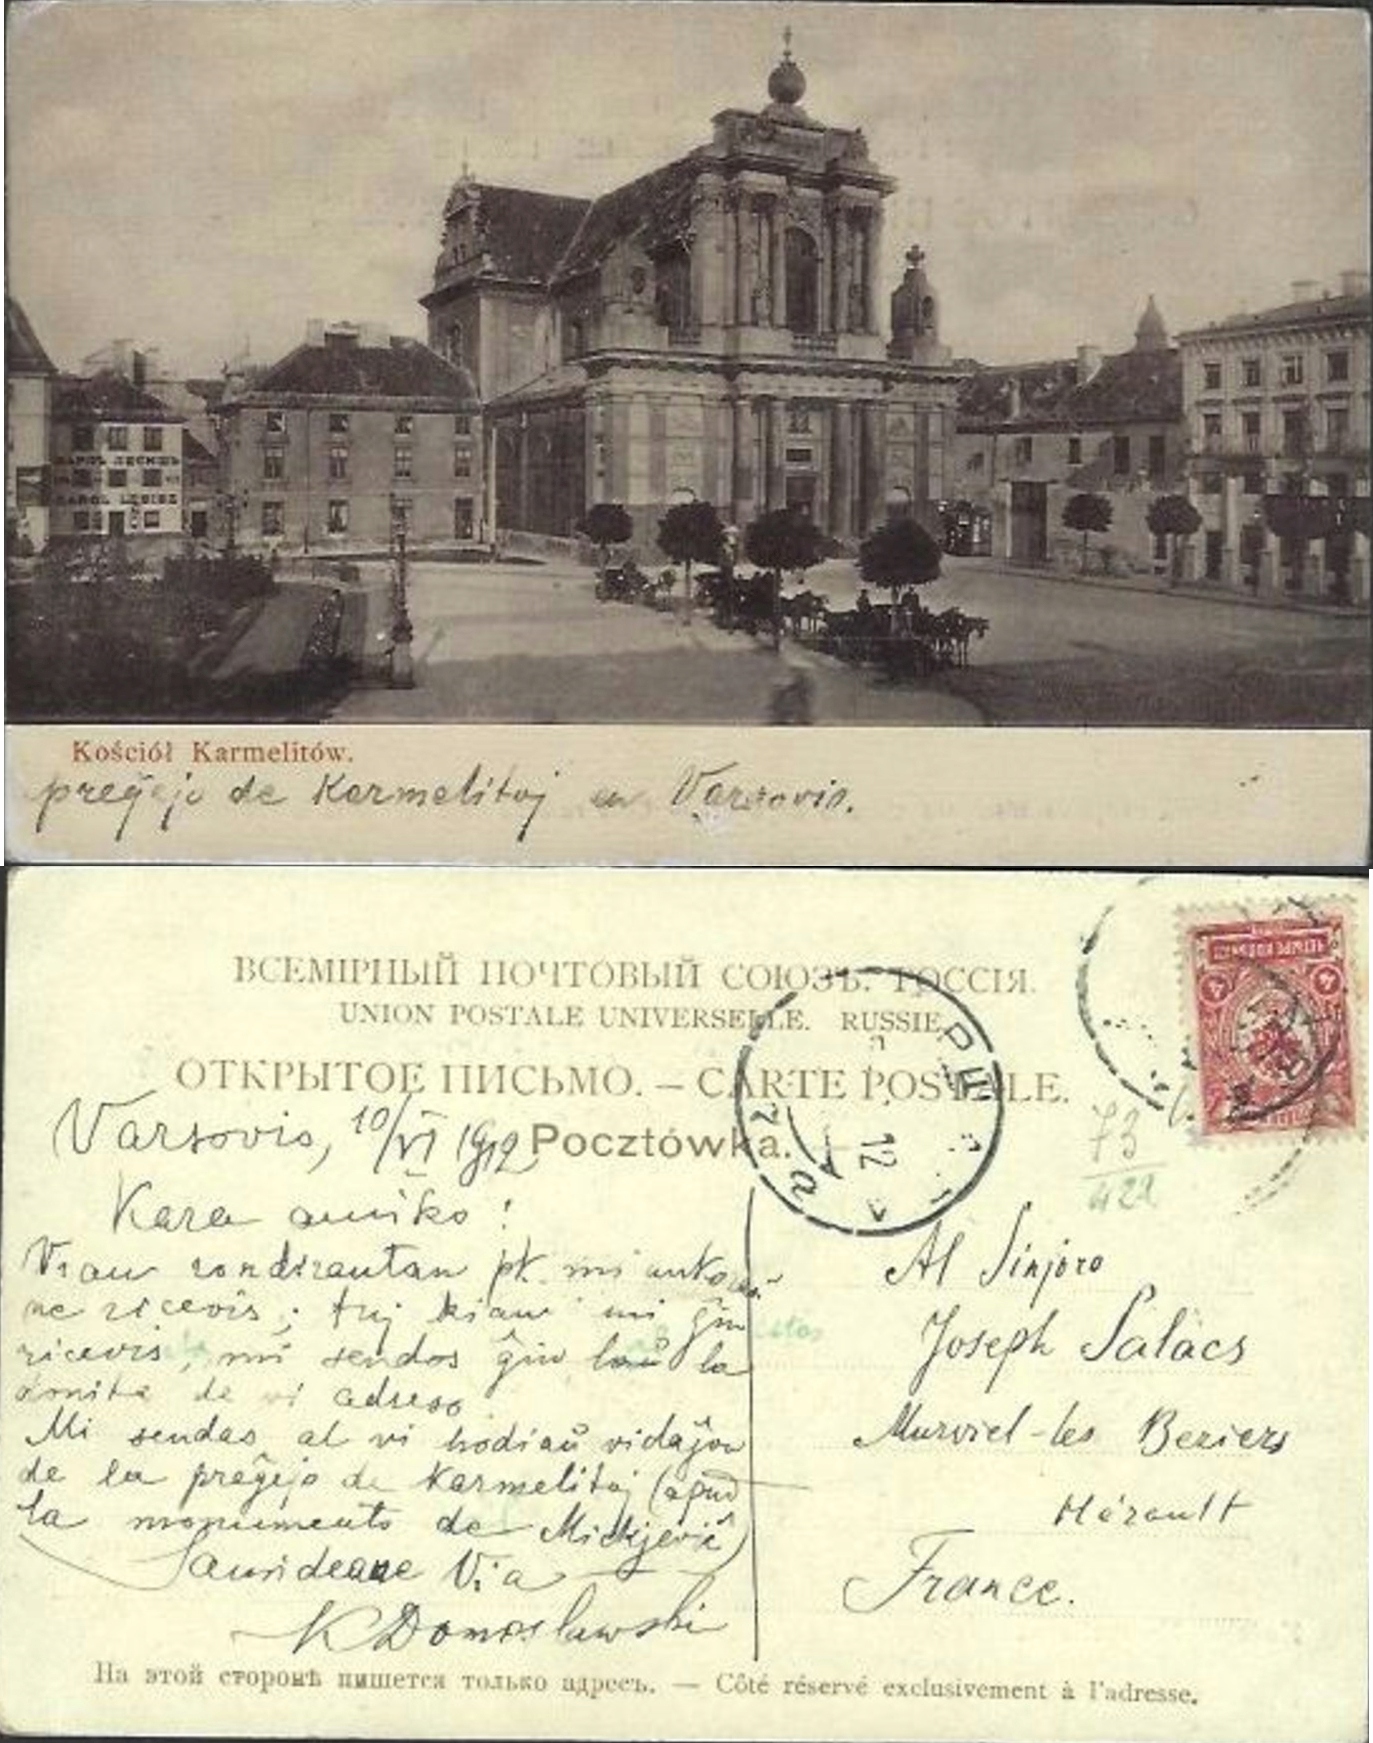 KAROL LESISZ
Kościół Karmelitów.
preĝejo de Karmelitoj en Varsovio.
ВСЕМІРНЫЙ ПОЧТОВЫЙ СОЮЗЪ. РОССІЯ.
UNION POSTALE UNIVERSELLE. RUSSIE
ОТКРЫТОЕ ПИСЬМО. — CARTE POSTALE.
Varsovio, 10/VI 1912
Pocztówka.
12
73
421
Kara amiko!
Vian rondirantan pk. mi ankoraŭ
ne ricevis; tuj kiam mi ĝin
ricevis, mi sendos ĝin laŭ la
donita de vi adreso
Mi sendas al vi hodiaŭ vidaĵon
de la preĝejo de Karmelitoj (apud
la monumento de Mickjeviĉ)
Samideane Via
K Domosławski
Al Sinjoro
Joseph Salacs
Murviel-les Beziers
Hérault
France.
На этой сторонѣ пишется только адресъ. — Côté réservé exclusivement à l'adresse.